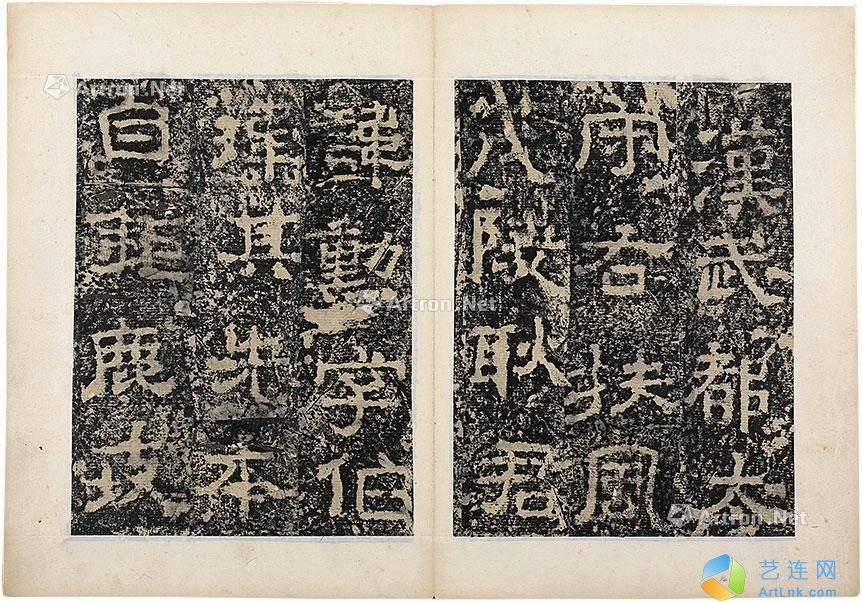 漢武都太
守右扶風
八陵耿君
諱勳字伯
瑋其先本
自鉅鹿
Artron.Net
Artron.Net
Artron.Net
艺连网
ArtLnk.com